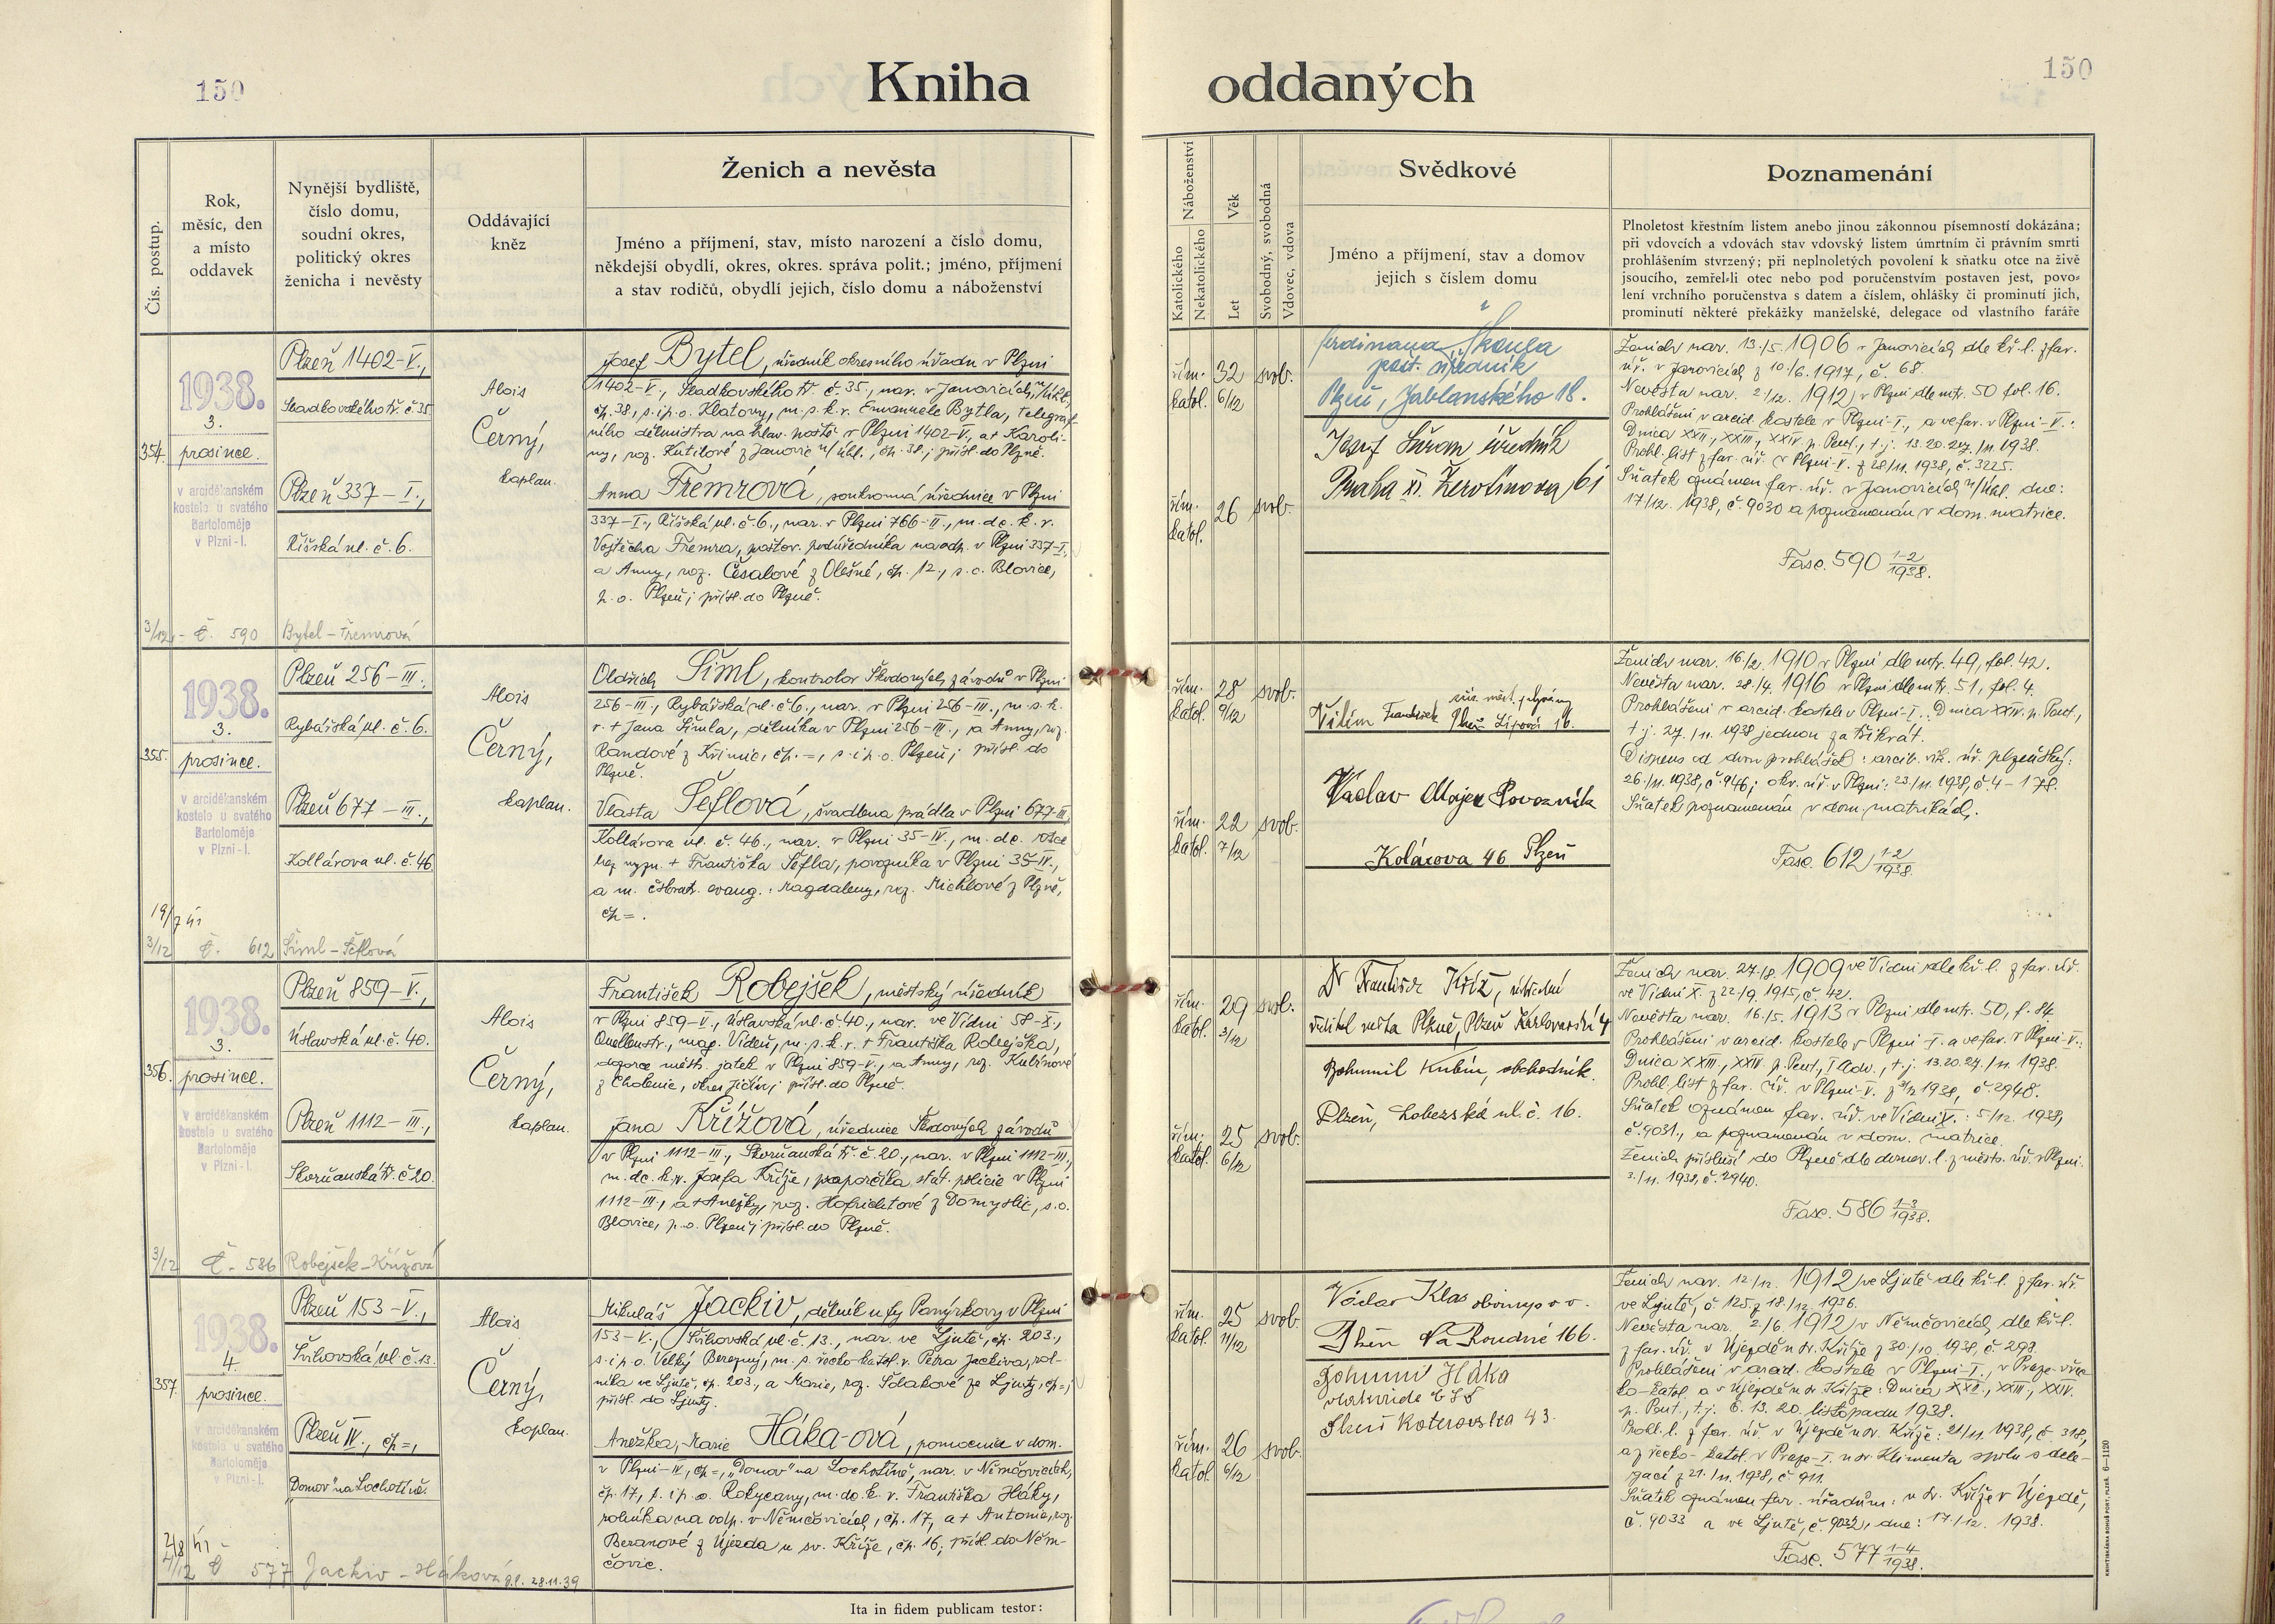 150
Kniha oddaných
150
Čís. postup.
Rok,
měsíc, den
a místo
oddavek
Nynější bydliště,
číslo domu,
soudní okres,
politický okres
ženicha i nevěsty
Oddávající
kněz
Ženich a nevěsta
Jméno a příjmení, stav, místo narození a číslo domu,
někdejší obydlí, okres, okres. správa polit.; jméno, příjmení
a stav rodičů, obydlí jejich, číslo domu a náboženství
Náboženství
Katolického
Nekatolického
Věk
Let
Svobodný, svobodná
Vdovec, vdova
Svědkové
Jméno a příjmení, stav a domov
jejich s číslem domu
Poznamenání
Plnoletost křestním listem anebo jinou zákonnou písemností dokázána;
při vdovcích a vdovách stav vdovský listem úmrtním či právním smrti
prohlášením stvrzený; při neplnoletých povolení k sňatku otce na živě
jsoucího, zemřel-li otec nebo pod poručenstvím postaven jest, povo-
lení vrchního poručenstva s datem a číslem, ohlášky či prominutí jich,
prominutí některé překážky manželské, delegace od vlastního faráře
354.
1938.
3.
prosince.
v arciděkanském
kostele u svatého
Bartoloměje
v Plzni-I.
Plzeň 1402-V.,
Sladkovského tř. č. 35.
Plzeň 337-I.,
Říšská ul. č. 6.
Alois
Černý,
kaplan.
Josef Bytel, úředník okresního úřadu v Plzni
1402-V., Sladkovského tř. č. 35., nar. v Janovicích n/Úhl.,
čp. 38, s. i p. o. Klatovy, m. s. k. v. Emanuele Bytla, telegraf-
ního dělmistra na hlav. poště v Plzni 1402-V., a + Karoli-
ny, roz. Kutilové z Janovic n/Úhl., čp. 38.; přísl. do Plzně.
Anna Třemrová, soukromá úřednice v Plzni
337-I., Říšská ul. č. 6., nar. v Plzni 766-II., m. dc. k. v.
Vojtěcha Třemra, poštov. podúředníka na odp. v Plzni 337-I.,
a Anny, roz. Česalové z Olešné, čp. 12., s. o. Blovice,
p. o. Plzeň; přísl. do Plzně.
3/12 - č. 590 Bytel - Třemrová
řím. katol.
32 6/12
svob.
řím. katol.
26
svob.
Ferdinand Škoula
pošt. úředník
Plzeň, Jablonského 18.
Josef Šůram úředník
Praha XI. Žerotínova 61
Ženich nar. 13./5. 1906 v Janovicích dle kř. l. z far.
úř. v Janovicích z 10./6. 1917, č. 68.
Nevěsta nar. 2/12. 1912 v Plzni dle mtr. 50 fol. 16.
Prohlášeni v arcid. kostele v Plzni-I., a ve far. v Plzni-V.:
Dnica XXII., XXIII., XXIV. p. Pent., t. j. 13. 20. 27./11. 1938.
Prohl. list z far. úř. v Plzni-V. z 28/11. 1938, č. 3225.
Sňatek oznámen far. úř. v Janovicích n/Úhl. dne:
17/12. 1938, č. 9030 a poznamenán v dom. matrice.
Fasc. 590 1-2/1938.
355.
1938.
3.
prosince.
v arciděkanském
kostele u svatého
Bartoloměje
v Plzni-I.
Plzeň 256-III.,
Rybářská ul. č. 6.
Plzeň 677-III.,
Kollárova ul. č. 46.
Alois
Černý,
kaplan.
Oldřich Šiml, kontrolor Škodových závodů v Plzni
256-III., Rybářská ul. č. 6., nar. v Plzni 256-III., m. s. k.
v. + Jana Šimla, dělníka v Plzni 256-III., a Anny, roz.
Randové z Křimic, čp. =, s. i p. o. Plzeň; přísl. do
Plzně.
Vlasta Šeflová, švadlena prádla v Plzni 677-III.,
Kollárova ul. č. 46., nar. v Plzni 35-IV., m. dc. otce
bez vyzn. + Františka Šefla, povozníka v Plzni 35-IV.,
a m. čsbrat. evang.: Magdaleny, roz. Michlové z Plzně,
čp = .
3/12 č. 612 Šiml - Šeflová
řím. katol.
28 9/12
svob.
řím. katol.
22 7/12
svob.
Vilím František
Plzeň Lipová 16.
Václav Majer Povozník
Kolárova 46 Plzeň
Ženich nar. 16/2. 1910 v Plzni dle mtr. 49, fol. 42.
Nevěsta nar. 28./4. 1916 v Plzni dle mtr. 51, fol. 4.
Prohlášeni v arcid. kostele v Plzni-I.: Dnica XXIV. p. Pent.,
t. j. 27./11. 1938 jednou za třikrát.
Dispens od dvou prohlášek: arcib. vik. úř. plzeňský:
26./11. 1938, č. 946; okr. úř. v Plzni: 23/11. 1938, č. 4-178.
Sňatek poznamenán v dom. matrikách.
Fasc. 612 1-2/1938.
356.
1938.
3.
prosince.
v arciděkanském
kostele u svatého
Bartoloměje
v Plzni-I.
Plzeň 859-V.,
Úslavská ul. č. 40.
Plzeň 1112-III.,
Skorňanská tř. č. 20.
Alois
Černý,
kaplan.
František Robejšek, městský úředník
v Plzni 859-V., Úslavská ul. č. 40., nar. ve Vídni 58-X.,
Quellenstr., mag. Vídeň, m. s. k. v. + Františka Robejška,
dozorce městs. jatek v Plzni 859-V., a Anny, roz. Kulínové
z Cholenic, okres Jičín; přísl. do Plzně.
Jana Křížová, úřednice Škodových závodů
v Plzni 1112-III., Skorňanská tř. č. 20., nar. v Plzni 1112-III.,
m. dc. k. v. Josefa Kříže, praporčíka stát. policie v Plzni
1112-III., a + Anežky, roz. Hofrichtové z Domyslic, s. o.
Blovice, p. o. Plzeň; přísl. do Plzně.
3/12 č. 586 Robejšek - Křížová
řím. katol.
29 3/12
svob.
řím. katol.
25 6/12
svob.
Dr František Kříž, ústřední
ředitel města Plzně, Plzeň Karlovarská 4
Bohumil Kubín, obchodník.
Plzeň, Lobezská ul. č. 16.
Ženich nar. 27./8. 1909 ve Vídni dle kř. l. z far. úř.
ve Vídni X. z 22/9. 1915, č. 42.
Nevěsta nar. 16./5. 1913 v Plzni dle mtr. 50, f. 84.
Prohlášeni v arcid. kostele v Plzni I. a ve far. v Plzni-V.:
Dnica XXIII., XXIV p. Pent., I Adv., t. j. 13. 20. 27./11. 1938.
Prohl. list z far. úř. v Plzni-V. z 3/12 1938, č. 2948.
Sňatek oznámen far. úř. ve Vídni X.: 5/12. 1938,
č. 9031., a poznamenán v dom. matrice.
Ženich přísluší do Plzně dle domov. l. z městs. úř. v Plzni
3./11. 1938, č. 2940.
Fasc. 586 1-3/1938.
357.
1938.
4.
prosince.
v arciděkanském
kostele u svatého
Bartoloměje
v Plzni-I.
Plzeň 153-V.,
Švihovská ul. č. 13.
Plzeň IV., čp =,
"Domov" na Lochotíně.
Alois
Černý,
kaplan.
Mikuláš Jackiv, dělník u fy Panýrkovy v Plzni
153-V., Švihovská ul. č. 13., nar. ve Ljutě, čp. 203.,
s. i p. o. Velký Berezný, m. s. řecko-katol. v. Petra Jackiva, rol-
níka ve Ljutě, čp. 203., a Marie, roz. Šdakové ze Ljuty, čp =;
přísl. do Ljuty.
Anežka, Marie Háka-ová, pomocnice v dom.
v Plzni-IV, čp =, "Domov" na Lochotíně, nar. v Němčovicích,
čp. 17, s. i p. o. Rokycany, m. dc. k. v. Františka Háky,
rolníka na odp. v Němčovicích, čp. 17, a + Antonie, roz.
Beranové z Újezda u sv. Kříže, čp. 16; přísl. do Něm-
čovic.
4/12 č 577 Jackiv - Háková 28.11.39
řím. katol.
25 11/12
svob.
řím. katol.
26 6/12
svob.
Václav Klas
Plzeň Na Roudné 166.
Bohumil Háka
Plzeň Koterovská 43.
Ženich nar. 12/12. 1912 ve Ljutě dle kř. l. z far. úř.
ve Ljutě, č. 125. z 18./12. 1936.
Nevěsta nar. 2/6. 1912 v Němčovicích dle kř. l.
z far. úř. v Újezdě u sv. Kříže z 30./10. 1938, č. 298.
Prohlášeni v arcid. kostele v Plzni-I., v Praze-řec-
ko-katol. a v Újezdě u sv. Kříže: Dnica XXI., XXIII., XXIV.
p. Pent., t. j. 6. 13. 20. listopadu 1938.
Prohl. l. z far. úř. v Újezdě u sv. Kříže: 21/11. 1938, č. 318,
a z řecko-katol. v Praze-I. u sv. Klimenta spolu s dele-
gací z 21./11. 1938, č. 911.
Sňatek oznámen far. úřadům: u sv. Kříže v Újezdě,
č. 9033 a ve Ljutě, č. 9032, dne: 17./12. 1938.
Fasc. 577 1-4/1938.
Ita in fidem publicam testor:
KNIHTISKÁRNA BOHUŠ PORT, PLZEŇ. 6-1120